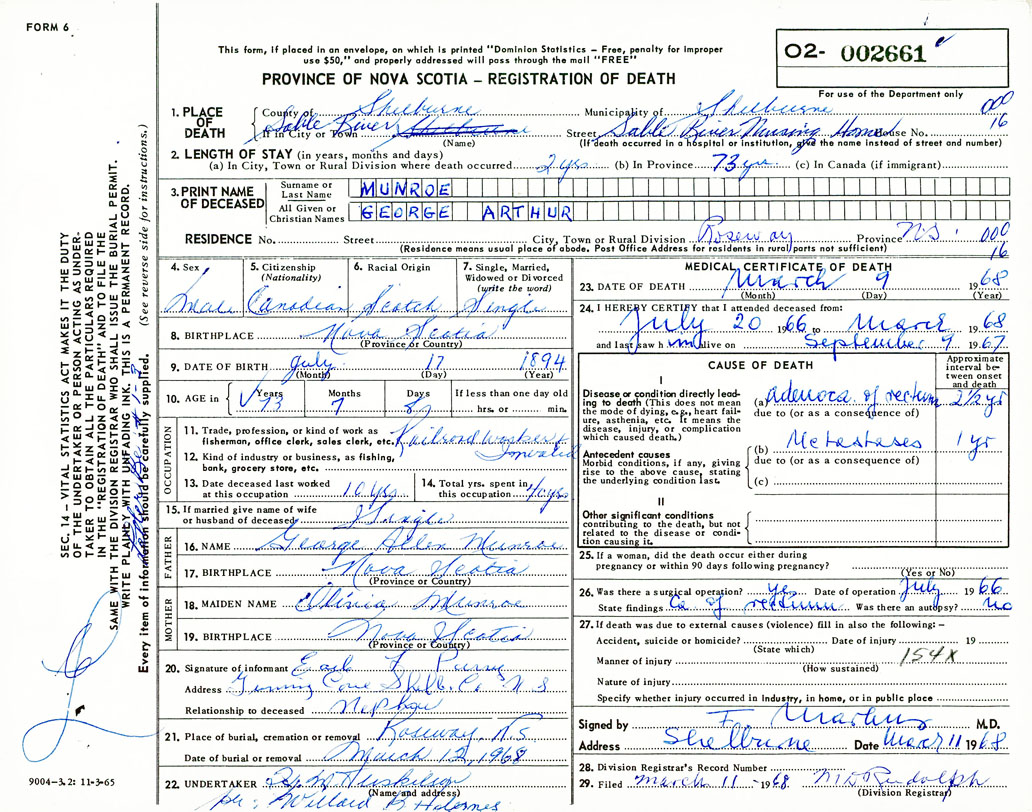 FORM 6
This form, if placed in an envelope, on which is printed "Dominion Statistics – Free, penalty for improper
use $50," and properly addressed will pass through the mail "FREE"
PROVINCE OF NOVA SCOTIA – REGISTRATION OF DEATH
O2- 002661
For use of the Department only
1. PLACE OF DEATH
County of Shelburne Municipality of Shelburne 000
If in City or Town Sable River Shelburne Street Sable River Nursing Home House No. 16
(Name) (If death occurred in a hospital or institution, give the name instead of street and number)
2. LENGTH OF STAY (in years, months and days)
(a) In City, Town or Rural Division where death occurred 2 yrs (b) In Province 73 yrs (c) In Canada (if immigrant)
3. PRINT NAME OF DECEASED
Surname or Last Name MUNROE
All Given or Christian Names GEORGE ARTHUR
RESIDENCE No. Street City, Town or Rural Division Roseway Province N.S. 000
(Residence means usual place of abode. Post Office Address for residents in rural parts not sufficient) 16
4. Sex Male
5. Citizenship (Nationality) Canadian
6. Racial Origin Scotch
7. Single, Married, Widowed or Divorced (write the word) Single
8. BIRTHPLACE Nova Scotia
(Province or Country)
9. DATE OF BIRTH July 17 1894
(Month) (Day) (Year)
10. AGE in Years 73 Months 7 Days If less than one day old hrs. or min.
OCCUPATION
11. Trade, profession, or kind of work as fisherman, office clerk, sales clerk, etc. Railroad worker
Invalid
12. Kind of industry or business, as fishing, bank, grocery store, etc.
13. Date deceased last worked at this occupation 10 yrs
14. Total yrs. spent in this occupation yrs
15. If married give name of wife or husband of deceased Single
FATHER
16. NAME George Allen Munroe
17. BIRTHPLACE Nova Scotia
(Province or Country)
MOTHER
18. MAIDEN NAME Munroe
19. BIRTHPLACE Nova Scotia
(Province or Country)
20. Signature of informant Earl F
Address Cove Shelb. Co N S
Relationship to deceased Nephew
21. Place of burial, cremation or removal Roseway, N.S.
Date of burial or removal March 12, 1968
22. UNDERTAKER
(Name and address)
per: Willard
MEDICAL CERTIFICATE OF DEATH
23. DATE OF DEATH March 9 1968
(Month) (Day) (Year)
24. I HEREBY CERTIFY that I attended deceased from:
July 20 1966 to March 1968
and last saw him alive on September 9 1967
CAUSE OF DEATH
Approximate interval between onset and death
I
Disease or condition directly leading to death (This does not mean the mode of dying, e.g., heart failure, asthenia, etc. It means the disease, injury, or complication which caused death.)
(a) adenoca. of rectum 2½ yr
due to (or as a consequence of)
Antecedent causes
Morbid conditions, if any, giving rise to the above cause, stating the underlying condition last.
(b) Metastases 1 yr
due to (or as a consequence of)
(c)
II
Other significant conditions contributing to the death, but not related to the disease or condition causing it.
25. If a woman, did the death occur either during pregnancy or within 90 days following pregnancy?
(Yes or No)
26. Was there a surgical operation? yes Date of operation July 1966
State findings Ca of rectum Was there an autopsy? no
27. If death was due to external causes (violence) fill in also the following: –
Accident, suicide or homicide? Date of injury 19
(State which)
Manner of injury 154X
(How sustained)
Nature of injury
Specify whether injury occurred in Industry, in home, or in public place
Signed by F. M.D.
Address Shelburne Date March 11 1968
28. Division Registrar's Record Number
29. Filed March 11 1968 Rudolph
(Division Registrar)
SEC. 14 – VITAL STATISTICS ACT MAKES IT THE DUTY
OF THE UNDERTAKER OR PERSON ACTING AS UNDER-
TAKER TO OBTAIN ALL THE PARTICULARS REQUIRED
IN THE "REGISTRATION OF DEATH" AND TO FILE THE
SAME WITH THE DIVISION REGISTRAR WHO SHALL ISSUE THE BURIAL PERMIT.
WRITE PLAINLY WITH UNFADING INK. THIS IS A PERMANENT RECORD.
Every item of information should be carefully supplied. (See reverse side for instructions.)
9004-3.2: 11-3-65